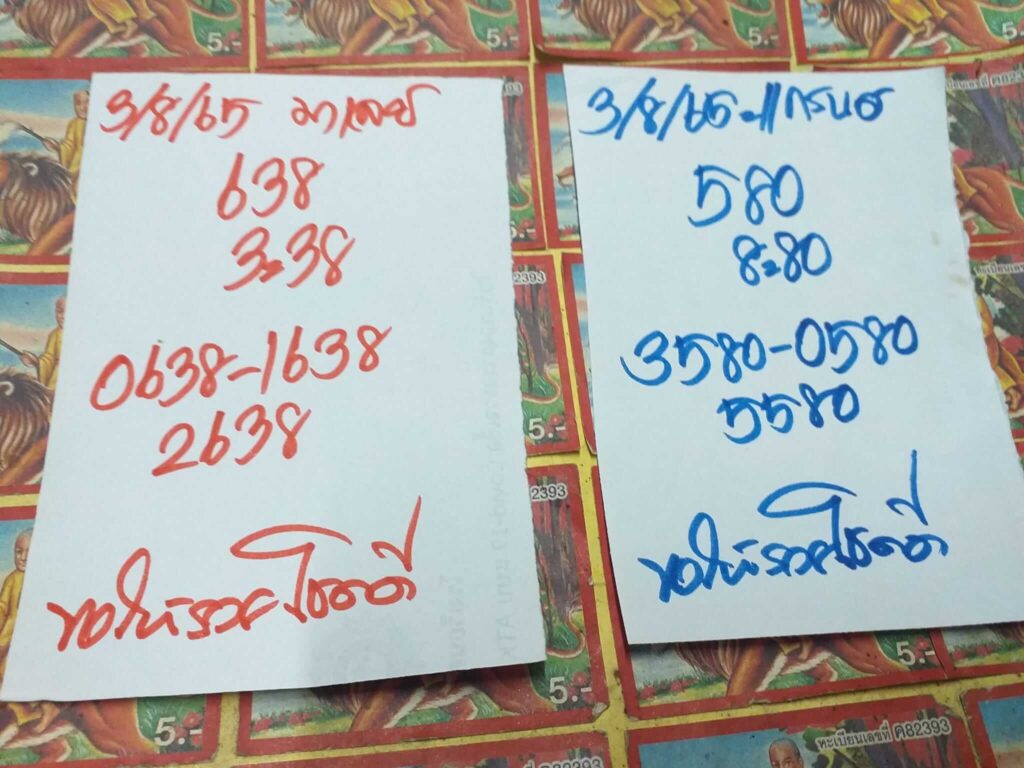 3/8/65 มาเลย์
638
3=38
0638-1638
2638
ขอให้รวยโชคดี
3/8/65=
580
8=80
3580-0580
5580
ขอให้รวยโชคดี
5.-
5.-
2393
5.-
2393
5.-
5.-
5.-
ทะเบียนเลขที่ ค82393